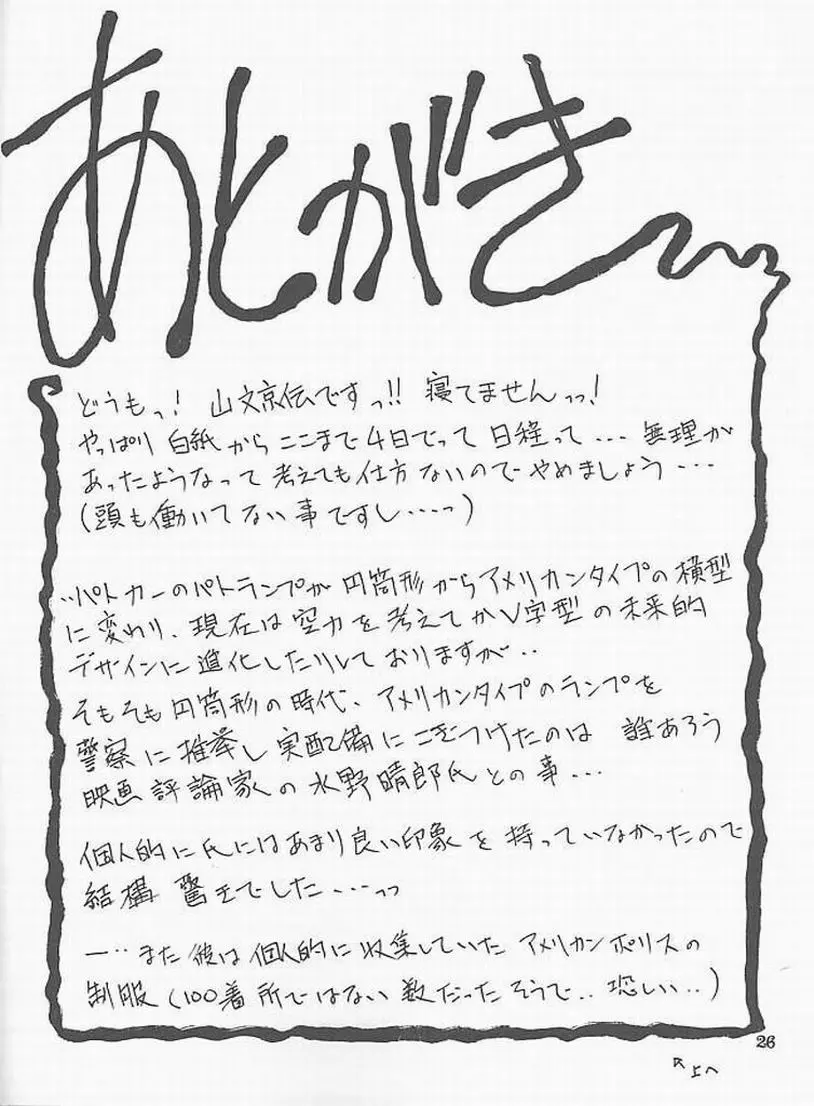 あとがき
どうもっ! 山文京伝ですっ!! 寝てませんっっ!
やっぱり 白紙からここまで4日でって 日程って... 無理が
あったようなって 考えても仕方ないのでやめましょう...
(頭も働いてない事ですし...っ)
パトカーのパトランプが 円筒形からアメリカンタイプの横型
に変わり、現在は空力を考えてかV字型の未来的
デザインに進化したりしておりますが..
そもそも円筒形の時代、アメリカンタイプのランプを
警察に推挙し実配備にこぎつけたのは 誰あろう
映画評論家の水野晴郎氏との事...
個人的に氏にはあまり良い印象を持っていなかったので
結構 驚きでした...っっ
ー..また彼は個人的に収集していたアメリカンポリスの
制服(100着所ではない数だったそうで..恐しい..)
26
↖上へ